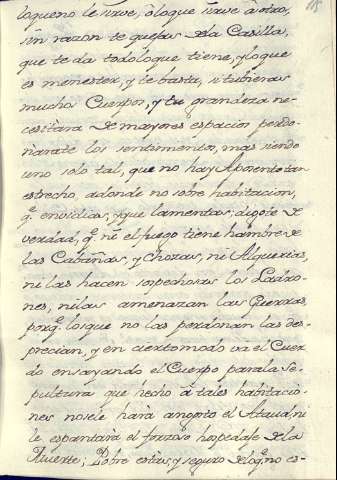 loqueno le sirve, ô loque sirve a otro,
sin razon te quejas de la Casilla,
que te da todoloque tiene, y loque
es menester, y te basta, si tubieras
mucho Cuerpo, y tu grandeza ne-
cesitára de mayores espacios perdo-
náráte los sentimientos, mas siendo
uno solo tal, que no hay Aposento tan
estrecho, adonde no sobre habitacion,
q.e envidias, y que lamentas; digote de
verdad, q.e ni el fuego tiene hambre de
las Cabañas, y chozas, ni Alquerias,
ni las hacen sospechosas los Ladro-
nes, nilas amenazan las Guerras,
porq.e losque no las perdonan las des-
precian, y en ciertomodo vá el Cuer-
do ensayando el Cuerpo parala Se-
pultura que hecho â tales habitacio-
nes nosele hará angosto el Ataud, ni
le espantará el forzoso hospedaje dela
Muerte; Pobre estás, y seguro de loq.e no es-